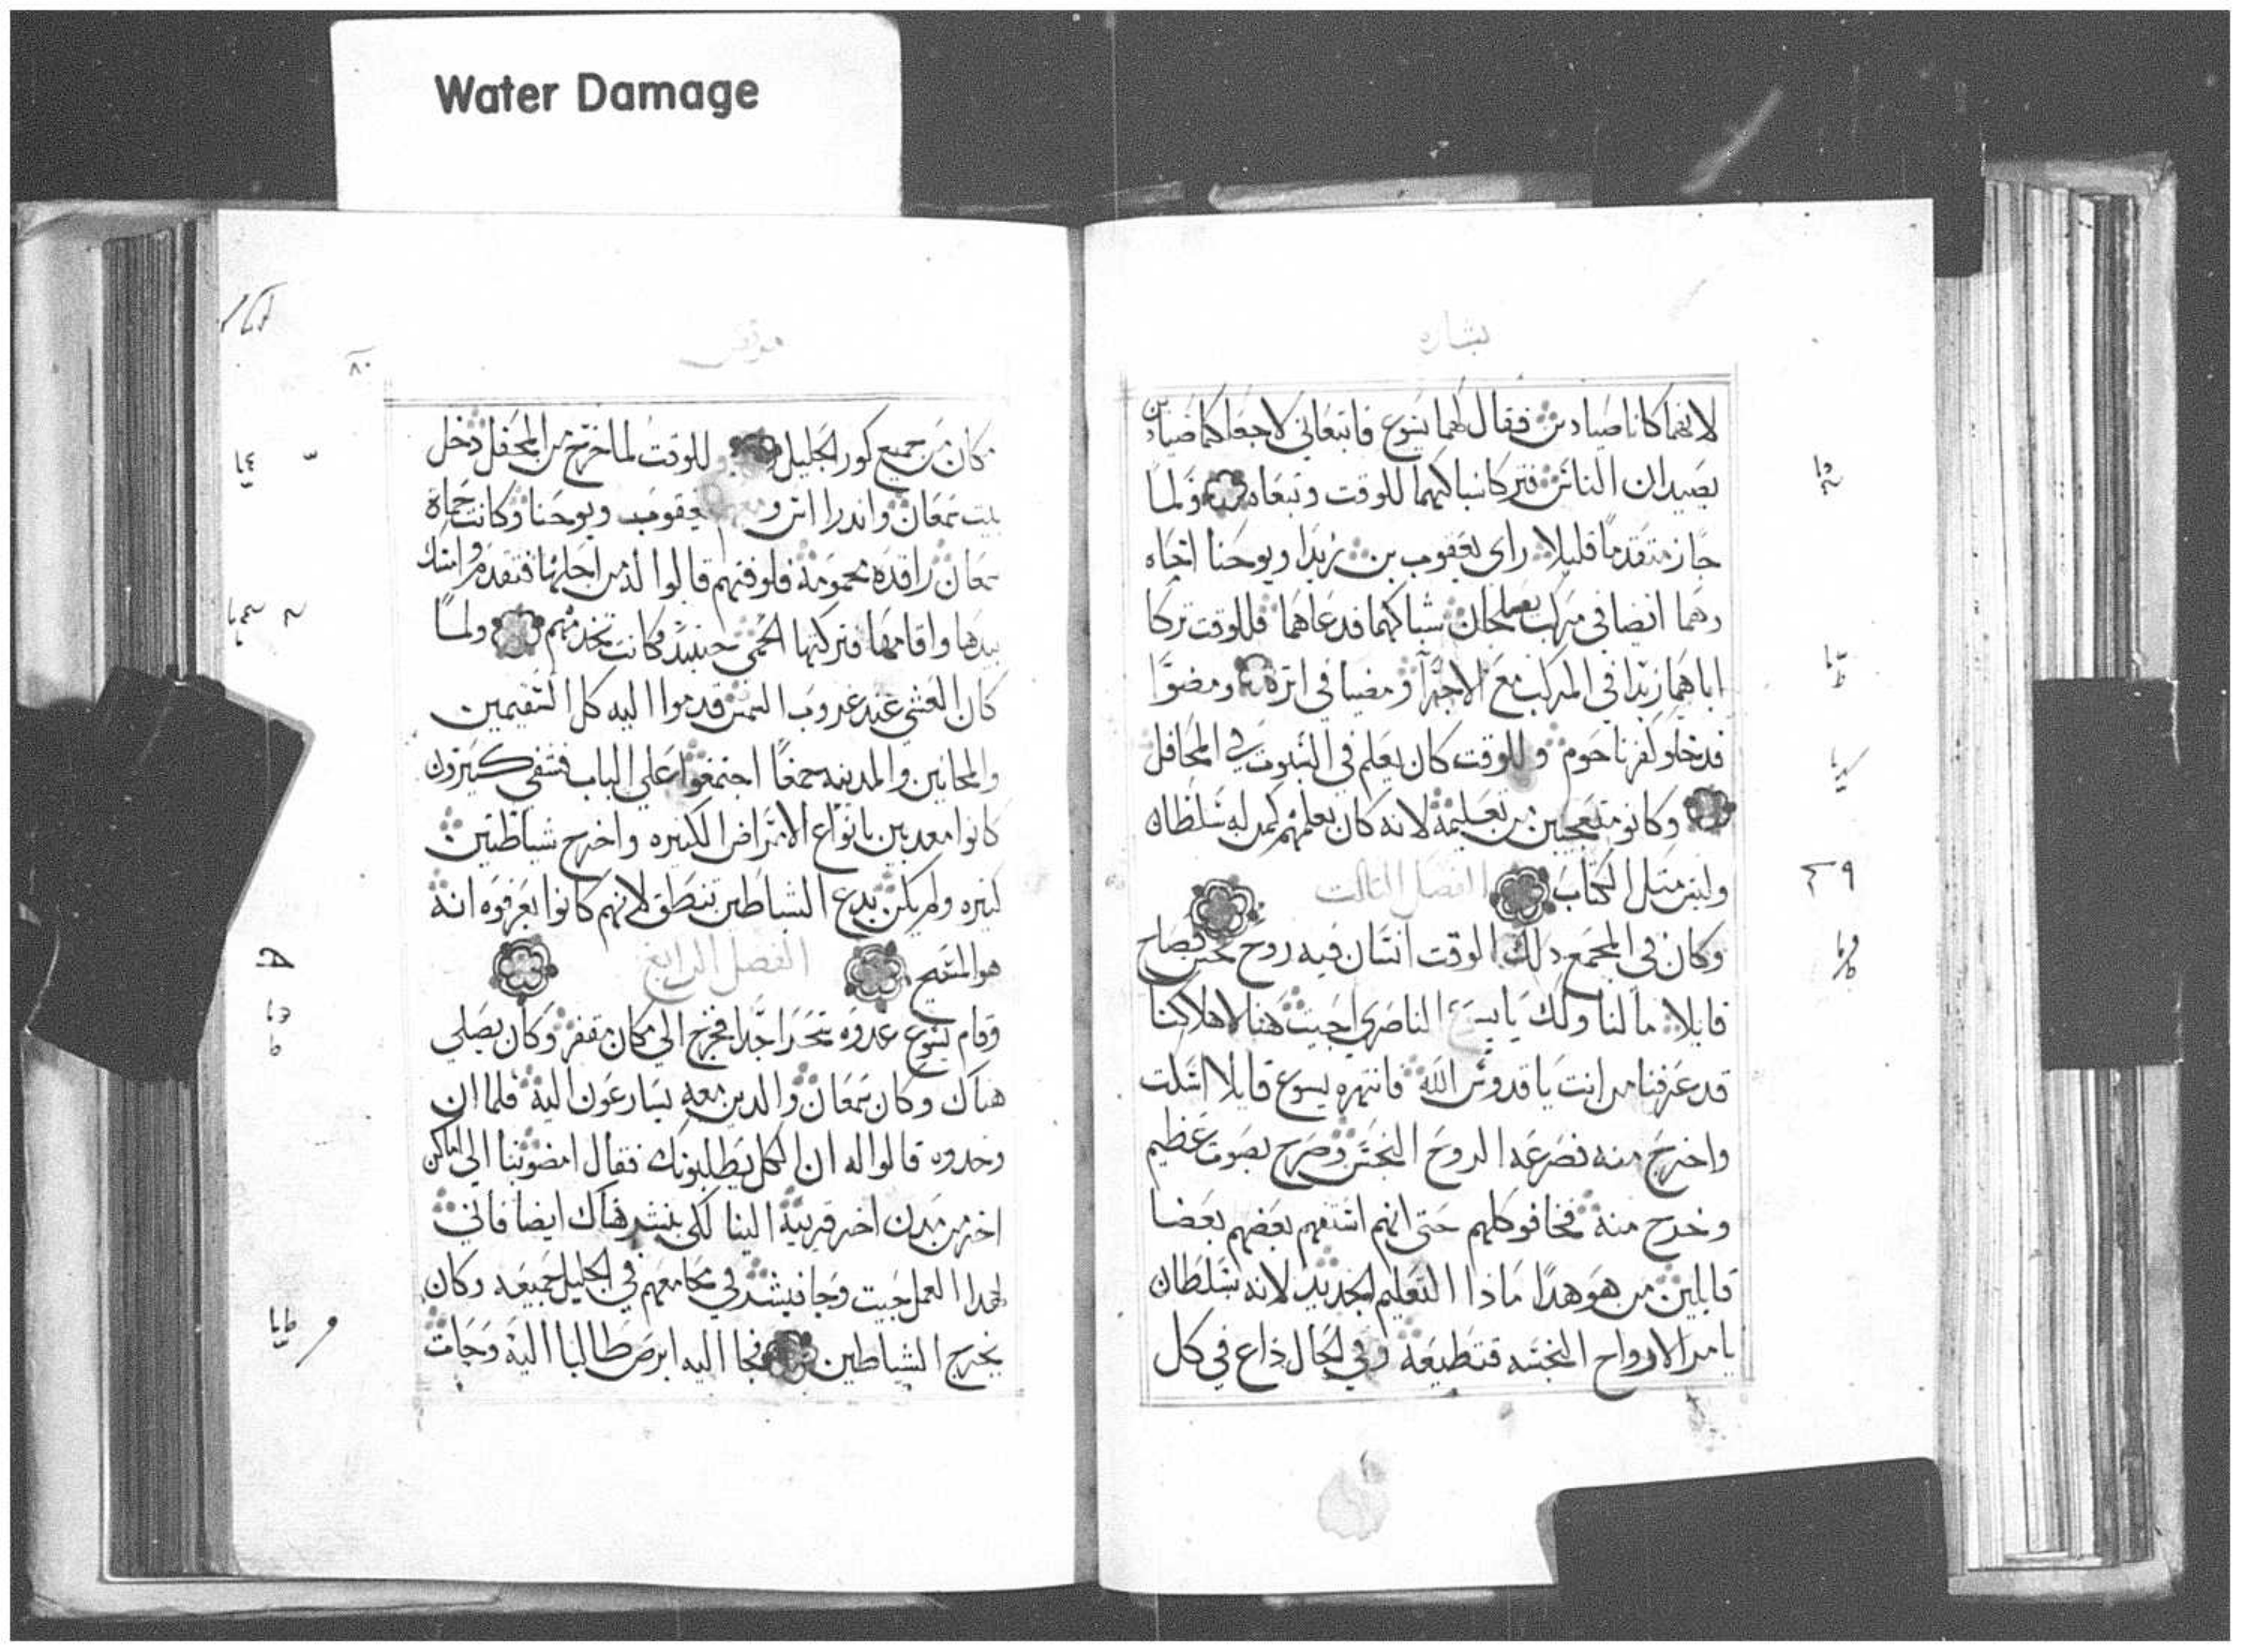 Water Damage
بشاره
لانهما كانا صيادين فقال لهما يسوع فاتبعاني لاجعلكما صيادين
يصيدان الناس فتركا شباكهما للوقت وتبعاه ولما
جاز متقدما قليلا راى يعقوب بن زبدا ويوحنا اخاه
وهما ايضا في مركب يصلحان شباكهما فدعاهما فللوقت تركا
اباهما زبدا في المركب مع الاجرآ ومضيا في اثره ومضوا
فدخلو كفرناحوم وللوقت كان يعلم في السبوت في المحافل
وكانو متعجبين من تعليمه لانه كان يعلمهم كمن له سلطان
وليس مثل الكتاب الفصل الثالث
وكان في المجمع دلك الوقت انسان فيه روح نجس فصاح
قايلا ما لنا ولك يا يسوع الناصري اجيت هنا لاهلاكنا
قد عرفنا من انت يا قدوس الله فانتهره يسوع قايلا اسكت
واخرج منه فصرعه الروح النجس وصرخ بصوت عظيم
وخرج منه فخافو كلهم حتى انهم استفهم بعضهم بعضا
قايلين من هو هدا ماذا التعليم الجديد لانه بسلطان
يامر الارواح النجسه فتطيعه وفي الحال ذاع في كل
مرقس
٨٠
مكان من جميع كور الجليل وللوقت لما خرج من المحفل دخل
بيت سمعان واندراس و يعقوب ويوحنا وكانت حماة
سمعان راقده محمومه فلوقتهم قالوا له من اجلها فتقدم وامسك
بيدها واقامها فتركتها الحمى حينيد وكانت تخدمهم ولما
كان العشي عند غروب الشمس قدموا اليه كل السقيمين
والمجانين والمدينه جمعا اجتمعوا على الباب فشفى كثيرون
كانوا معدبين بانواع الامراض الكثيره واخرج شياطين
كثيره ولم يكن يدع الشياطين تنطق لانهم كانوا يعرفوه انه
هو المسيح الفصل الرابع
وقام يسوع غدوه سحرا جدا فخرج الى مكان مقفر وكان يصلي
هناك وكان سمعان والدين معه يسارعون اليه فلما ان
وجدوه قالوا له ان الكل يطلبونك فقال امضو بنا الى اماكن
اخر من مدن اخر قريبة الينا لكي ننشر هناك ايضا فاني
لهدا العمل جيت وجا فبشر في مجامعهم في الجليل جميعه وكان
يخرج الشياطين فجا اليه ابرص طالبا اليه وجاث